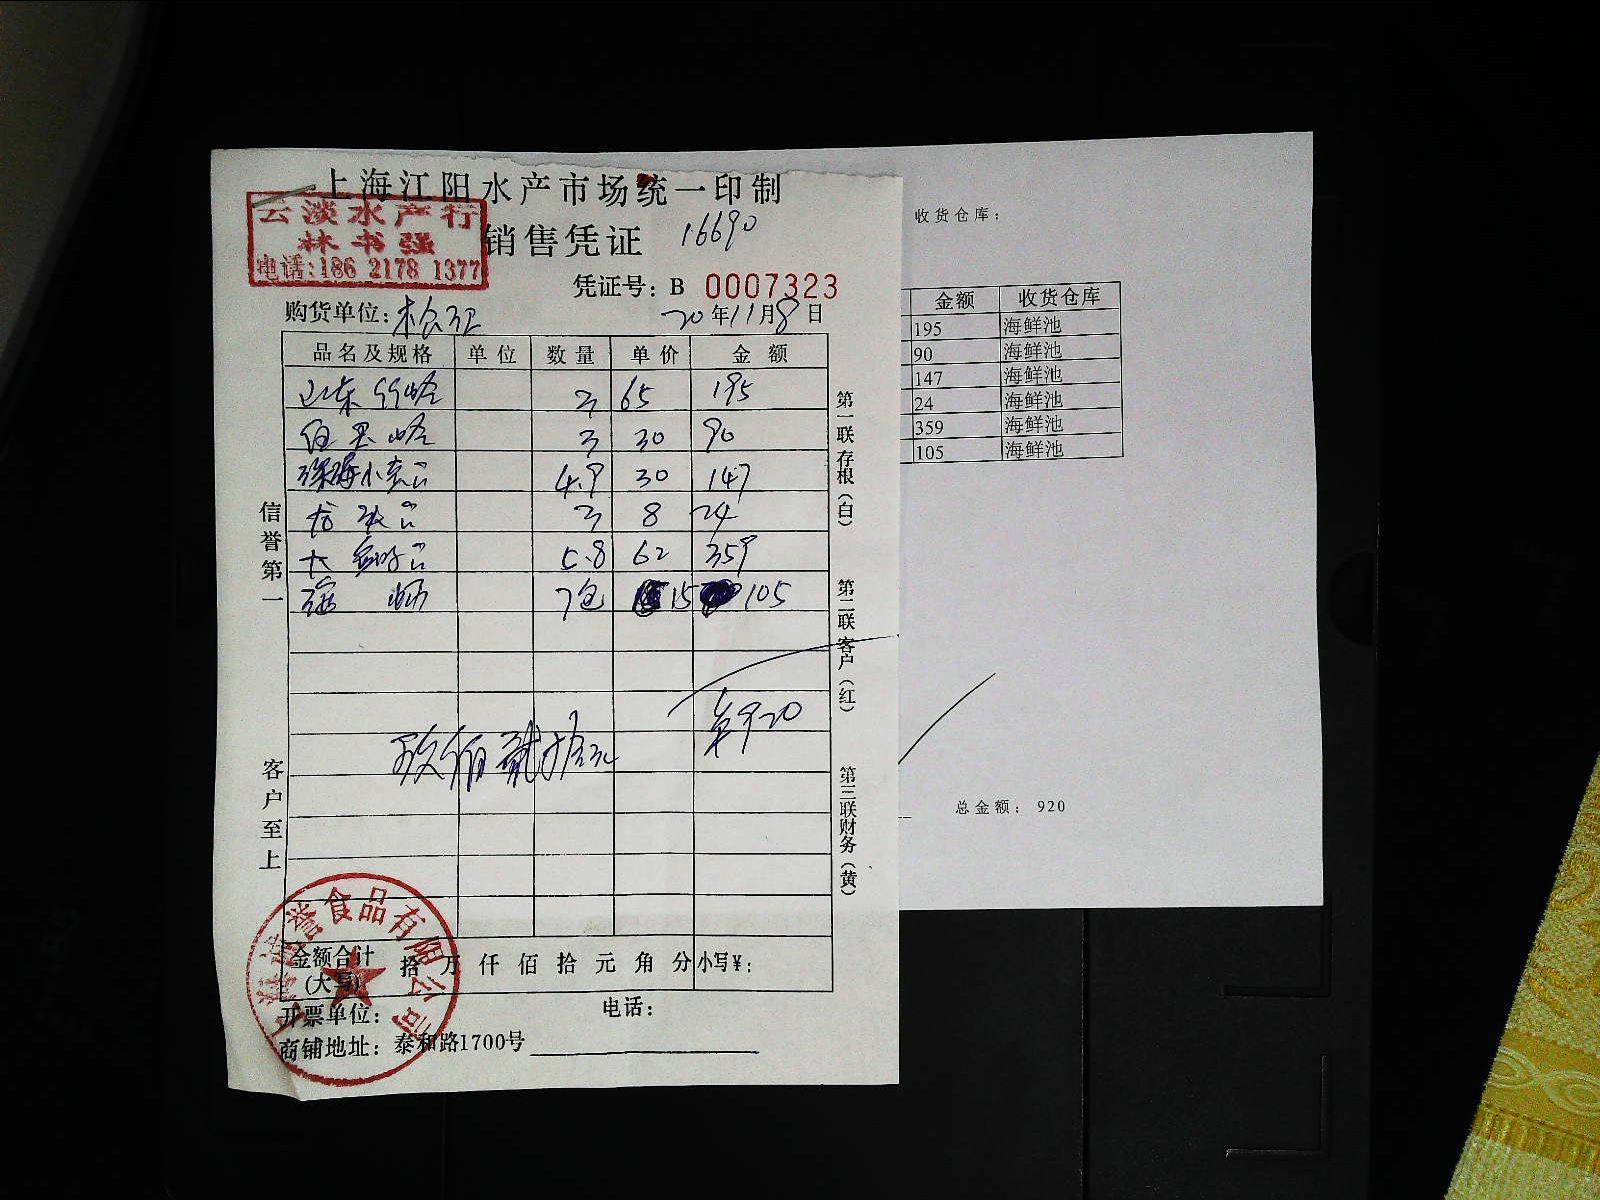 上海江阳水产市场统一印制
云淡水产行
林书强
电话:186 2178 1377
销售凭证 16690
凭证号: B 0007323
购货单位: 松江 20年11月8日
品名及规格 单位 数量 单价 金额
山东竹蛏 3 65 195
白玉蛏 3 30 90
深海小 4.9 30 147
3 8 24
大 5.8 62 359
7包 15 105
920
玖佰贰拾元
金额合计(大写) 拾 万 仟 佰 拾 元 角 分 小写¥:
开票单位: 电话:
商铺地址: 泰和路1700号
信誉第一
客户至上
第一联存根(白)
第二联客户(红)
第三联财务(黄)
誉食品有限公司
收货仓库:
金额 收货仓库
195 海鲜池
90 海鲜池
147 海鲜池
24 海鲜池
359 海鲜池
105 海鲜池
总金额: 920